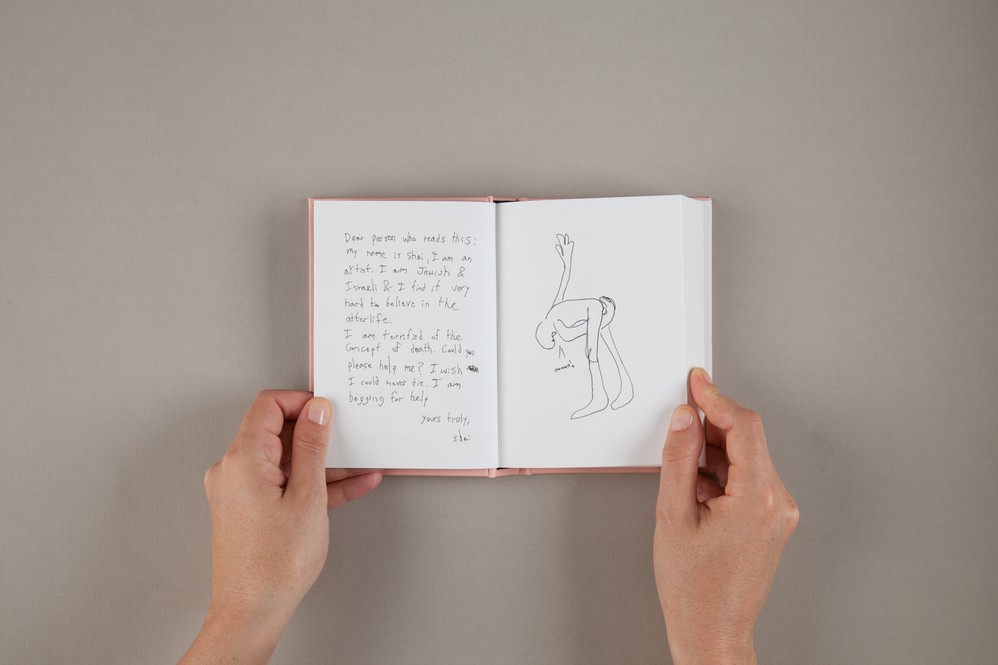 Dear person who reads this:
my name is Shai, I am an
artist. I am Jewish &
Israeli & I find it very
hard to believe in the
afterlife.
I am terrified of the
concept of death. Could you
please help me? I wish
I could never die. I am
begging for help
yours truly,
shai